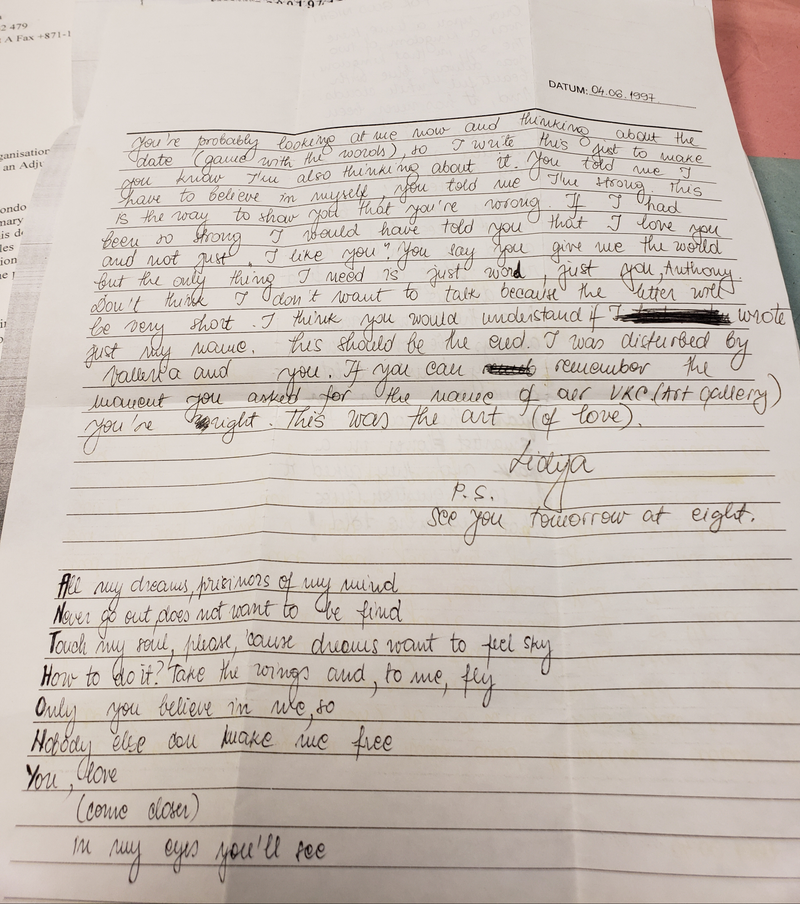 2 479
A Fax +871-1
ganisation
an Adju
DATUM: 04.06.1997
You're probably looking at me now and thinking about the
date (game with the words), so I write this just to make
you know I'm also thinking about it. You told me I
have to believe in myself, you told me I'm strong. This
is the way to show you that you're wrong. If I had
been so strong I would have told you that I love you
and not just „I like you". You say you give me the world
but the only thing I need is just word, just you, Anthony.
Don't think I don't want to talk because the letter will
be very short. I think you would understand if I wrote
just my name. This should be the end. I was disturbed by
and you. If you can remember the
moment you asked for the name of our VKC (Art Gallery)
you're right. This was the art (of love).
Lidija
P.S.
See you tomorrow at eight.
All my dreams, prisinors of my mind
Never go out, does not want to be find
Touch my soul, please, 'cause dreams want to feel sky
How to do it? Take the wings and, to me, fly
Only you believe in me, so
Nobody else can make me free
You, love
(come closer)
in my eyes you'll see